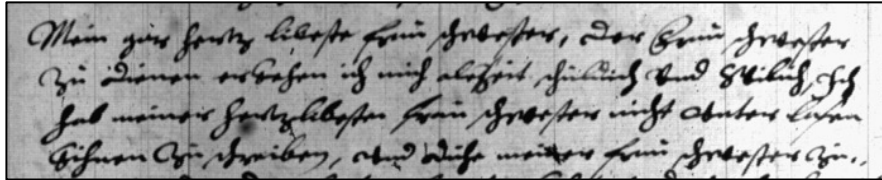 Mein gar hertz libeste frau schwester, der frau schwester
zu dienen erkehen ich mich alezeit schulich vnd wilich, Ich
hab meiner hertzlibesten frau schwester nicht vnter lasen
kihnen zu schreiben, vnd meiner frau schwester zu